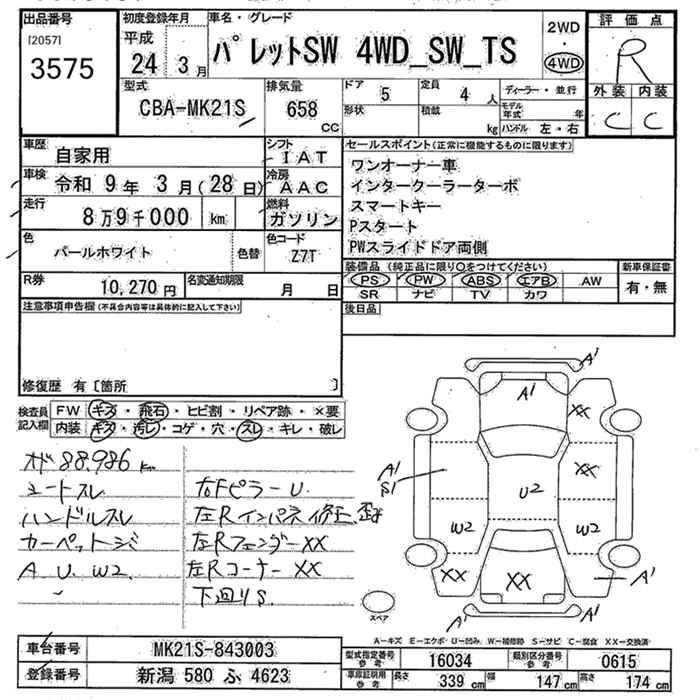 出品番号
[2057]
3575
初度登録年月
平成
24 3月
車名・グレード
パレットSW 4WD_SW_TS
2WD
・
4WD
評価点
R
外装 内装
C C
型式
CBA-MK21S
排気量
658
CC
ドア
5
定員
4 人
形状
積載
kg
ディーラー・並行
モデル年式 年
ハンドル 左・右
車歴
自家用
シフト
IAT
車検
令和 9年 3月(28日)
冷房
AAC
走行
8万9千000 km
燃料
ガソリン
色
パールホワイト
色替
色コード
Z7T
セールスポイント(正常に機能するものに限ります)
ワンオーナー車
インタークーラーターボ
スマートキー
Pスタート
PWスライドドア両側
R券
10,270円
名変通知期限
月 日
装備品(純正品に限り○をつけてください)
PS PW ABS エアB AW
SR ナビ TV カワ
新車保証書
有・無
注意事項申告欄(不具合内容等は具体的に記入して下さい)
後日品
修復歴 有〔箇所 〕
検査員記入欄
FW キズ・飛石・ヒビ割・リペア跡・×要
内装 キズ・汚レ・コゲ・穴・スレ・キレ・破レ
オド 88,986 km
シートスレ
ハンドルスレ
カーペットシミ
A U W2
右Fピラー U
左Rインパネ修正、歪
左Rフェンダー XX
左Rコーナー XX
下回りS
A1
A1
XX
A1
S1
XX
U2
W2
W2
XX
XX
A1
スペア
A－キズ E－エクボ U－凹み W－補修跡 S－サビ C－腐食 XX－交換済
車台番号
MK21S-843003
登録番号
新潟 580 ふ 4623
型式指定番号
参考
16034
類別区分番号
参考
0615
車庫証明用
参考
長さ
339 cm
幅
147 cm
高さ
174 cm